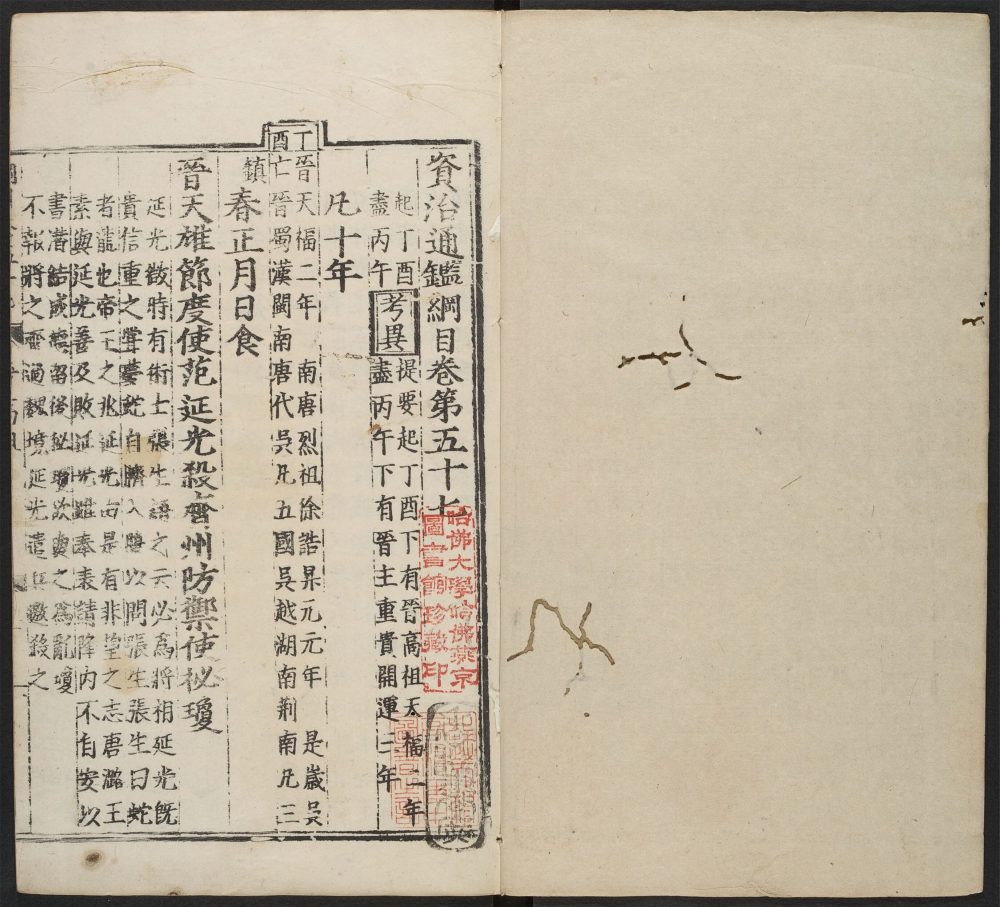 資治通鑑綱目卷第五十七
起丁酉
盡丙午
考異
提要起丁酉下有晉高祖天福二年
盡丙午下有晉主重貴開運三年
凡十年
丁酉
晉天福二年 南唐烈祖徐誥昇元元年 是歲吳
亡晉蜀漢閩南唐代吳凡五國吳越湖南荆南凡三
鎮
春正月日食
晉天雄節度使范延光殺齊州防禦使祕瓊
延光微時有術士張生語之云必為將相延光旣
貴信重之嘗夢蛇自臍入腹以問張生張生曰蛇
者龍也帝王之兆延光由是有非望之志唐潞王
素與延光善及敗延光雖奉表請降內不自安以
書潛結祕瓊欲與之為亂瓊
不報將之齊過魏境延光遣兵邀殺之
哈佛大學哈佛燕京
圖書館珍藏印